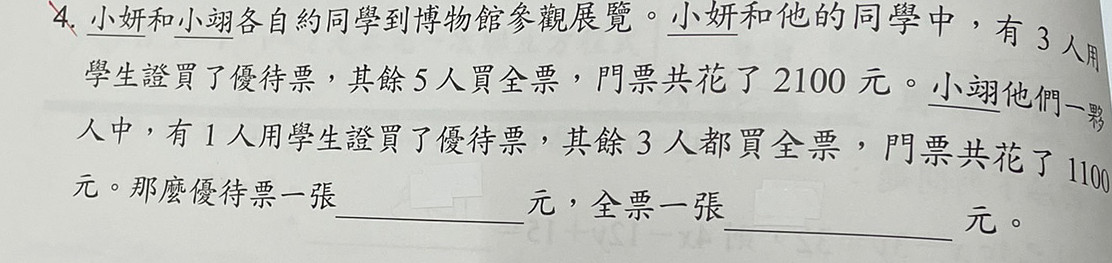 4. 小妍和小翊各自約同學到博物館參觀展覽。小妍和他的同學中，有 3 人用
學生證買了優待票，其餘 5 人買全票，門票共花了 2100 元。小翊他們一夥
人中，有 1 人用學生證買了優待票，其餘 3 人都買全票，門票共花了 1100
元。那麼優待票一張＿＿＿＿元，全票一張＿＿＿＿元。